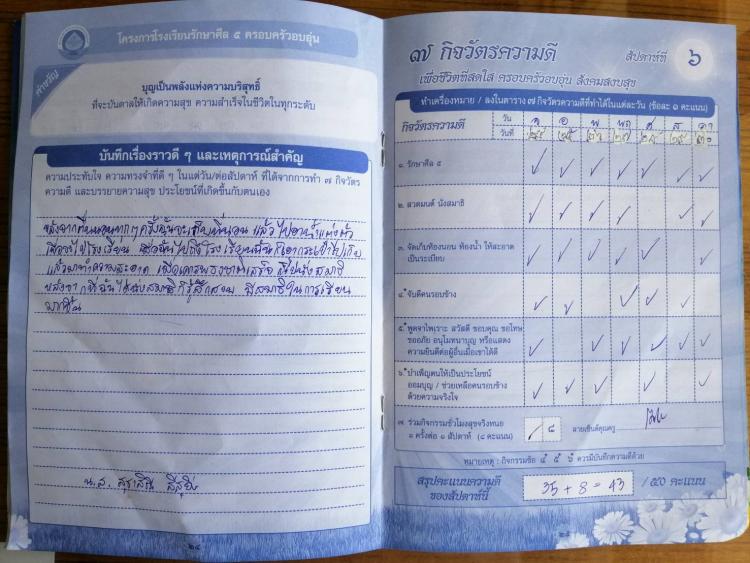 โครงการโรงเรียนรักษาศีล ๕ ครอบครัวอบอุ่น
คำขวัญ
บุญเป็นพลังแห่งความบริสุทธิ์
ที่จะบันดาลให้เกิดความสุข ความสำเร็จในชีวิตในทุกระดับ
บันทึกเรื่องราวดี ๆ และเหตุการณ์สำคัญ
ความประทับใจ ความทรงจำที่ดี ๆ ในแต่วัน/ต่อสัปดาห์ ที่ได้จากการทำ ๗ กิจวัตร
ความดี และบรรยายความสุข ประโยชน์ที่เกิดขึ้นกับตนเอง
หลังจากตื่นนอนทุกๆครั้งฉันจะเก็บที่นอน แล้วไปอาบน้ำแต่งตัว
เพื่อจะไปโรงเรียน เมื่อฉันไปถึงโรงเรียนฉันก็เอากระเป๋าไปเก็บ
แล้วมาทำความสะอาด เมื่อเคารพธงชาติเสร็จ ก็ไปนั่งสมาธิ
หลังจากที่ฉันได้นั่งสมาธิก็รู้สึกสงบ มีสมาธิในการเรียน
มากขึ้น
น.ส.
๒๔
๗ กิจวัตรความดี
สัปดาห์ที่ ๖
เพื่อชีวิตที่สดใส ครอบครัวอบอุ่น สังคมสงบสุข
ทำเครื่องหมาย / ลงในตาราง ๗ กิจวัตรความดีที่ทำได้ในแต่ละวัน (ข้อละ ๑ คะแนน)
กิจวัตรความดี วัน จ อ พ พฤ ศ ส อา
วันที่ ๒๔ ๒๕ ๒๖ ๒๗ ๒๘ ๒๙ ๓๐
๑. รักษาศีล ๕
๒. สวดมนต์ นั่งสมาธิ
๓. จัดเก็บห้องนอน ห้องน้ำ ให้สะอาด
เป็นระเบียบ
๔.* จับดีคนรอบข้าง
๕.* พูดจาไพเราะ สวัสดี ขอบคุณ ขอโทษ
ขออภัย อนุโมทนาบุญ หรือแสดง
ความยินดีต่อผู้อื่นเมื่อเขาได้ดี
๖.* บำเพ็ญตนให้เป็นประโยชน์
ออมบุญ / ช่วยเหลือคนรอบข้าง
ด้วยความจริงใจ
๗. ร่วมกิจกรรมชั่วโมงสุขจริงหนอ
๑ ครั้งต่อ ๑ สัปดาห์ (๘ คะแนน) / ๘ ลายเซ็นต์คุณครู
หมายเหตุ : กิจกรรมข้อ ๔ ๕ ๖ ควรมีบันทึกความดีด้วย
สรุปคะแนนความดี
ของสัปดาห์นี้ 35 + 8 = 43 / ๕๐ คะแนน